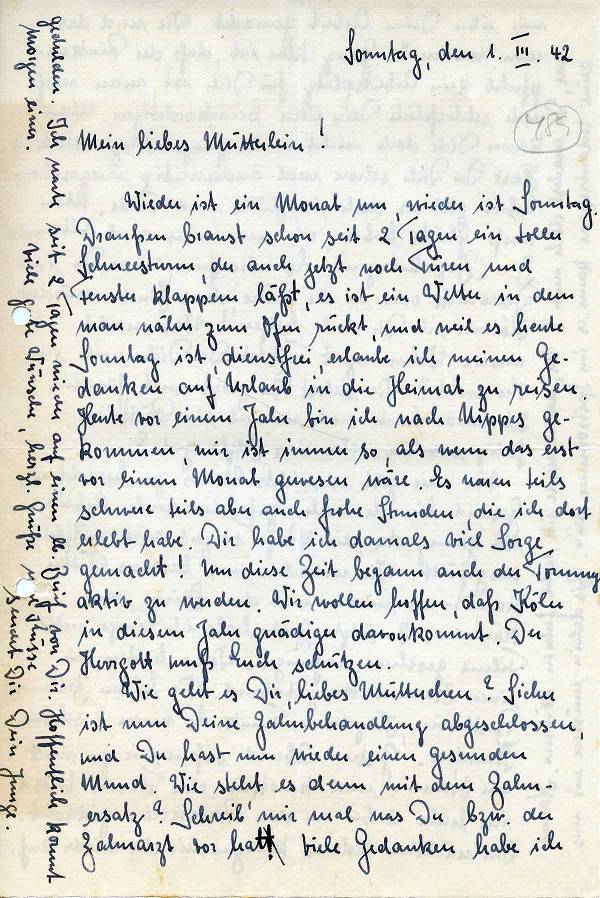 Sonntag, den 1. III. 42
485
Mein liebes Mütterlein!
Wieder ist ein Monat um, wieder ist Sonntag.
Draußen braust schon seit 2 Tagen ein toller
Schneesturm, der auch jetzt noch Türen und
Fenster klappern läßt, es ist ein Wetter in dem
man nähr zum Ofen rückt, und weil es heute
Sonntag ist, dienstfrei, erlaube ich meinen Ge-
danken auf Urlaub in die Heimat zu reisen.
Heute vor einem Jahr bin ich nach Nippes ge-
kommen, mir ist immer so, als wenn das erst
vor einem Monat gewesen wäre. Es waren teils
schwere teils aber auch frohe Stunden, die ich dort
erlebt habe. Dir habe ich damals viel Sorge
gemacht! Um diese Zeit begann auch der Tommy
aktiv zu werden. Wir wollen hoffen, daß Köln
in diesem Jahr gnädiger davonkommt. Der
Herrgott muß Euch schützen.
Wie geht es Dir, liebes Mütterchen? Sicher
ist nun Deine Zahnbehandlung abgeschlossen,
und Du hast nun wieder einen gesunden
Mund. Wie steht es denn mit dem Zahn-
ersatz? Schreib' mir mal was Du bzw. der
Zahnarzt vor hat! Viele Gedanken habe ich
gedulden. Ich warte seit 2 Tagen wieder auf einen lb. Brief von Dir. Hoffentlich kommt
morgen einer.
Viele gute Wünsche, herzl. Grüße und Küsse
sendet Dir Dein Junge.